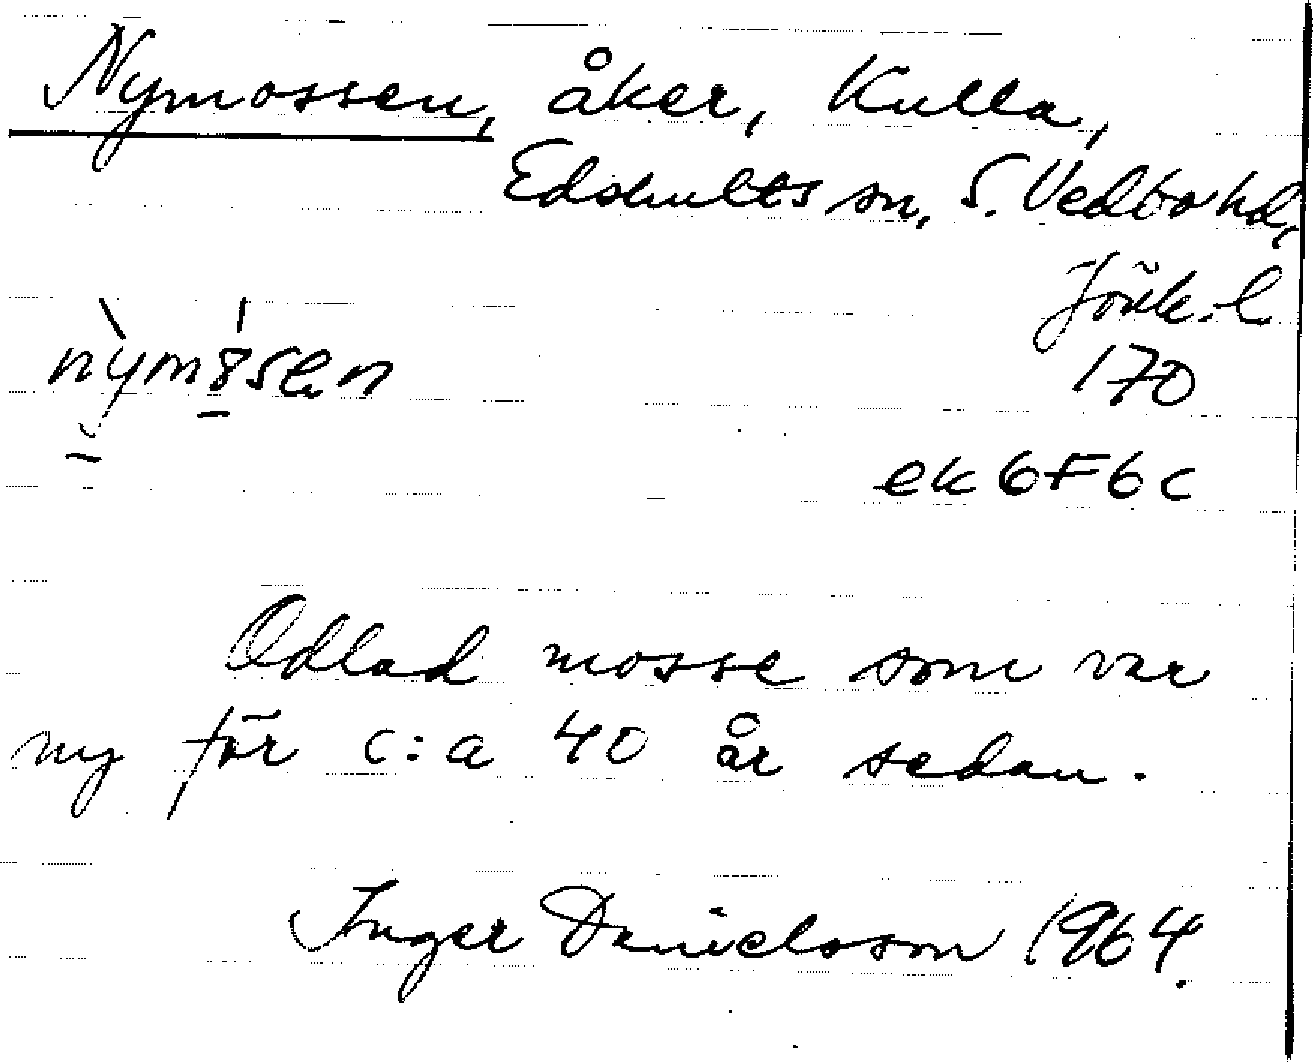 Nymossen, åker, Kulla,
Edshults sn, S. Vedbo hd,
Jönk. l
170
ek 6F6c
Odlad mosse som var
ny för c:a 40 år sedan.
Inger Danielsson 1964.